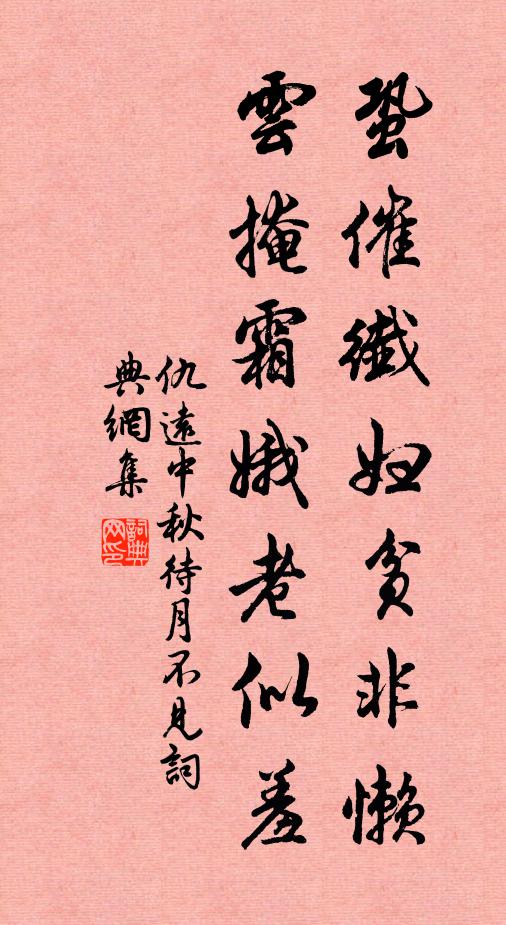 蛩催纖婦貧非懶
雲掩霜娥老似羞
仇遠中秋待月不見詞
典網集
詞典網印